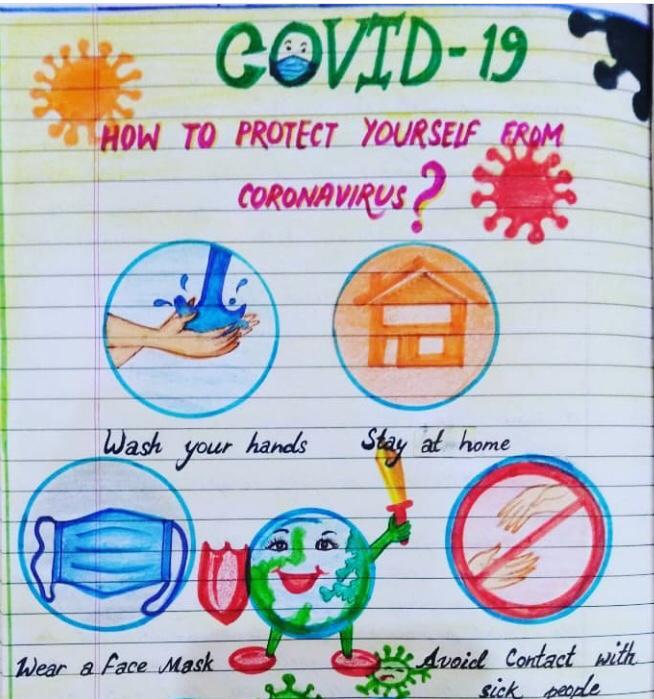 COVID-19
HOW TO PROTECT YOURSELF FROM
CORONAVIRUS?
Wash your hands
Stay at home
Wear a Face Mask
Avoid Contact with
sick people